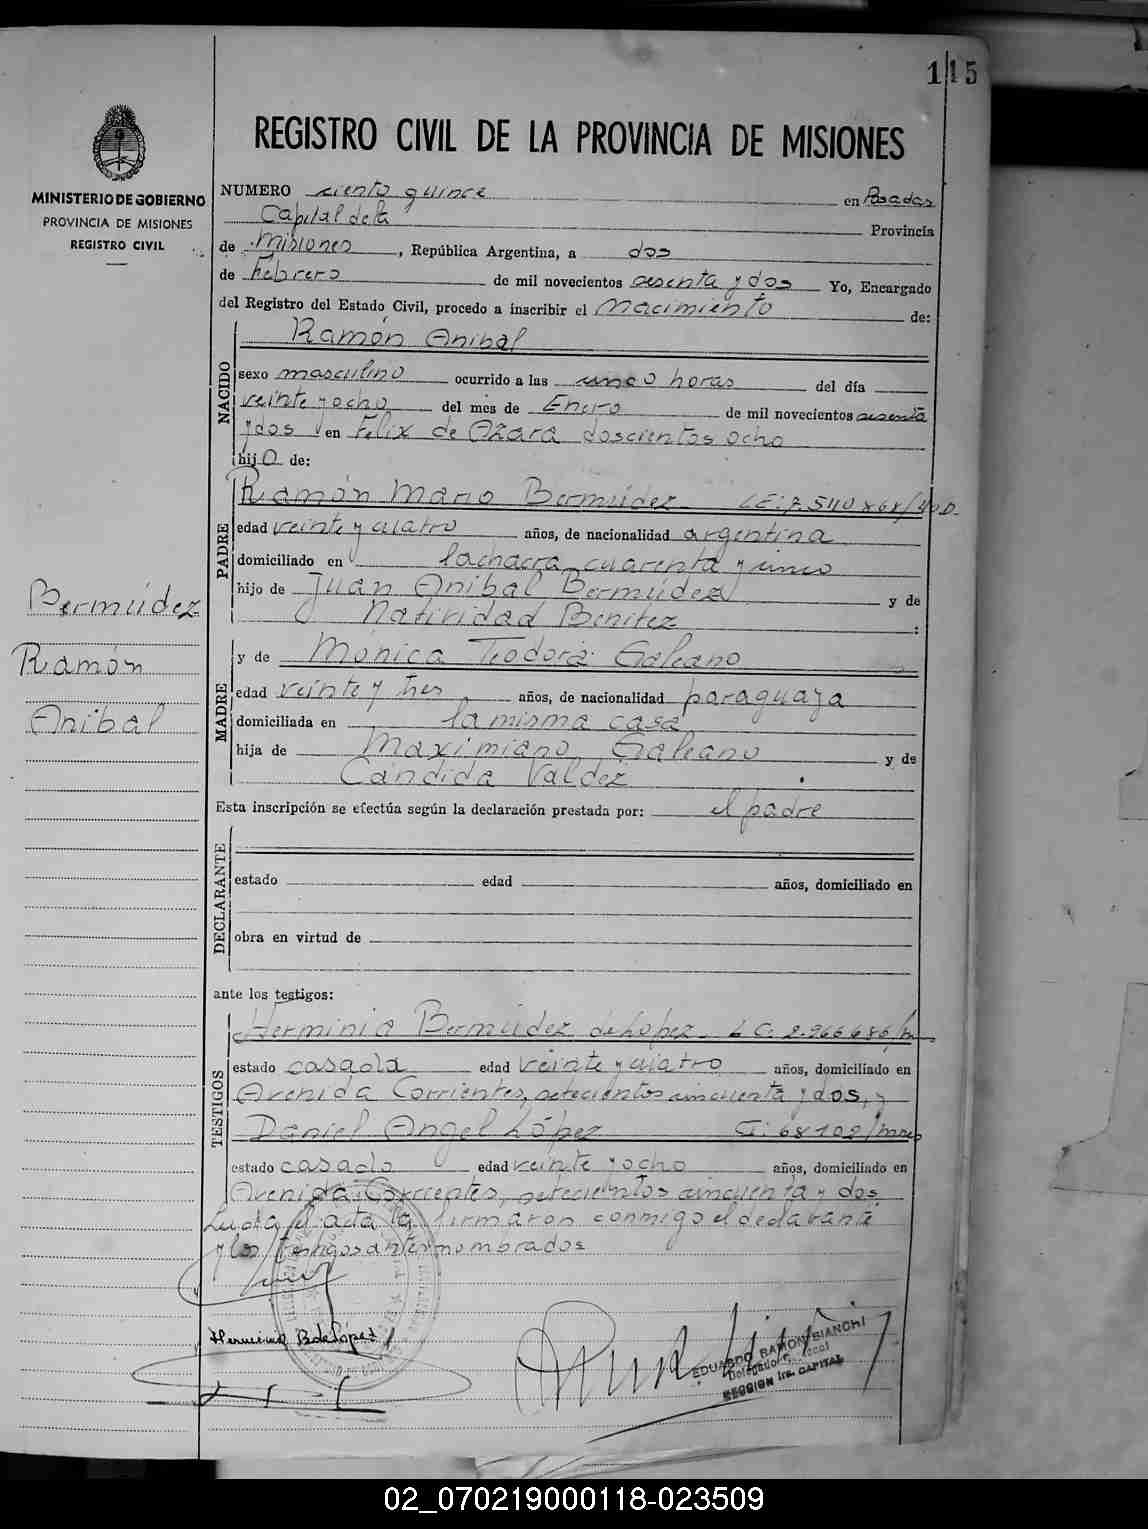 115
REGISTRO CIVIL DE LA PROVINCIA DE MISIONES
MINISTERIO DE GOBIERNO
PROVINCIA DE MISIONES
REGISTRO CIVIL
NUMERO ciento quince en Posadas
Capital de la Provincia
de Misiones, República Argentina, a dos
de Febrero de mil novecientos sesenta y dos Yo, Encargado
del Registro del Estado Civil, procedo a inscribir el Nacimiento de:
NACIDO
Ramón Anibal
sexo masculino ocurrido a las horas del día
veinte y ocho del mes de Enero de mil novecientos sesenta
y dos en Felix de Azara doscientos ocho
hijo de:
PADRE
Ramón Mario Bermúdez
edad veinte y cuatro años, de nacionalidad argentina
domiciliado en la chacra cuarenta y cinco
hijo de Juan Anibal Bermúdez y de
Natividad Benitez
MADRE
y de Mónica Teodora Galeano
edad veinte y tres años, de nacionalidad paraguaya
domiciliada en la misma casa
hija de Maximiano Galeano y de
Cándida Valdez
Bermúdez
Ramón
Anibal
Esta inscripción se efectúa según la declaración prestada por: el padre
DECLARANTE
estado edad años, domiciliado en
obra en virtud de
ante los testigos:
TESTIGOS
Herminia Bermúdez de López
estado casada edad veinte y cuatro años, domiciliado en
Avenida Corrientes, setecientos cincuenta y dos, y
Daniel Angel López
estado casado edad veinte y ocho años, domiciliado en
Avenida Corrientes, setecientos cincuenta y dos
Leida el acta la firmaron conmigo el declarante
y los testigos antes nombrados
Herminia B de López
EDUARDO RAMON BIANCHI
SECCION 1ra. CAPITAL
02_070219000118-023509